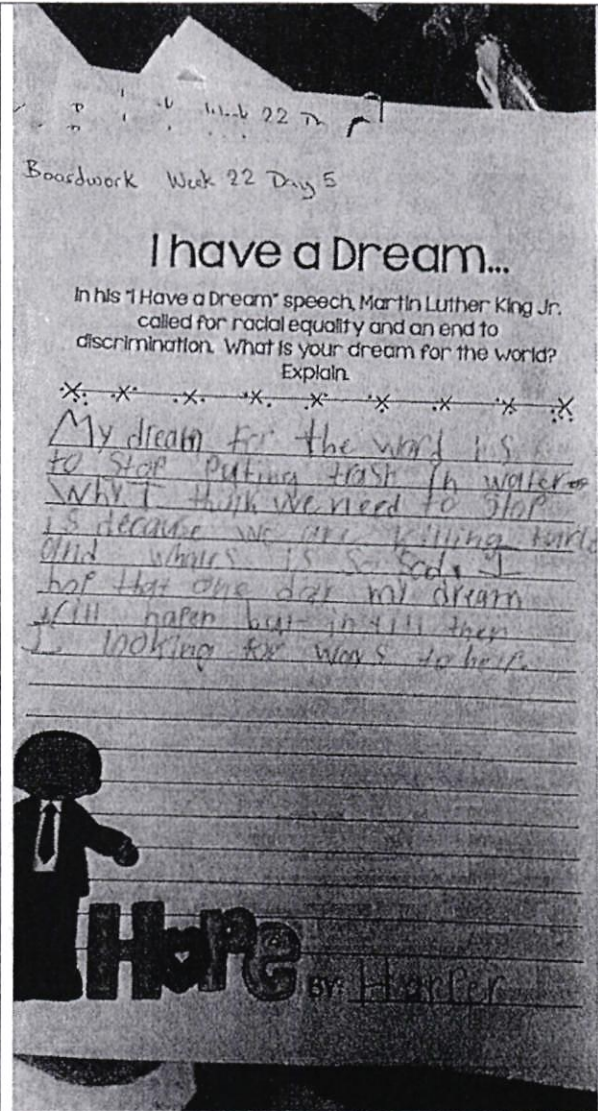 Week 22
Boardwork Week 22 Day 5
I have a Dream...
In his "I Have a Dream" speech, Martin Luther King Jr.
called for racial equality and an end to
discrimination. What is your dream for the world?
Explain.
My dream for the word is
to stop puting trash in water
Why I think we need to stop
is because we are killing turls
and whals is so sad. I
hop that one day my dream
will hapen but intill then
I looking for ways to help.
Hope BY: Harper